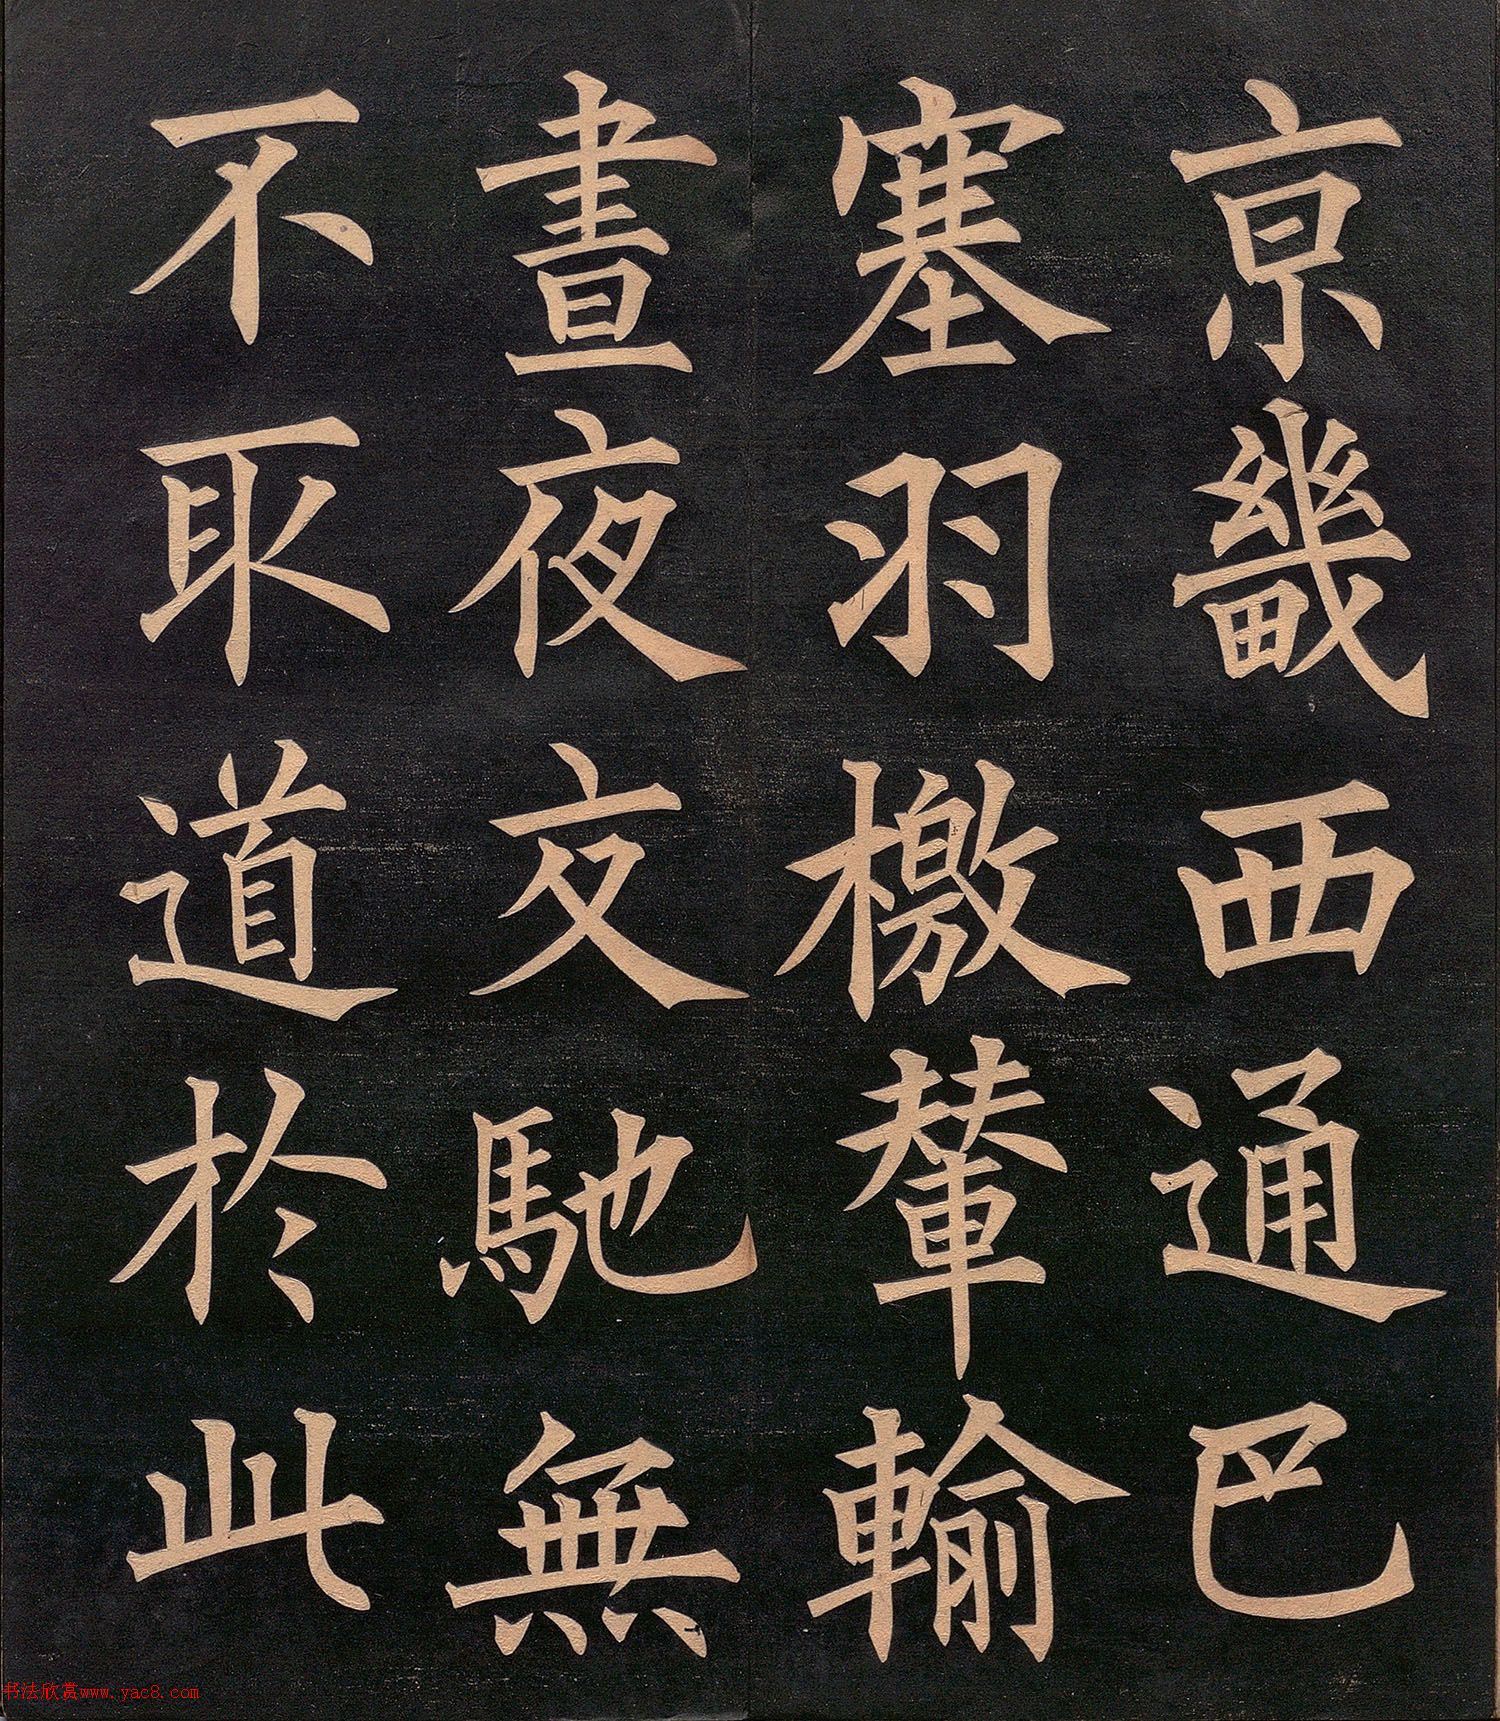 亰畿西通巴
塞羽檄輦輸
晝夜交馳無
不取道於此
书法欣赏www.yac8.com